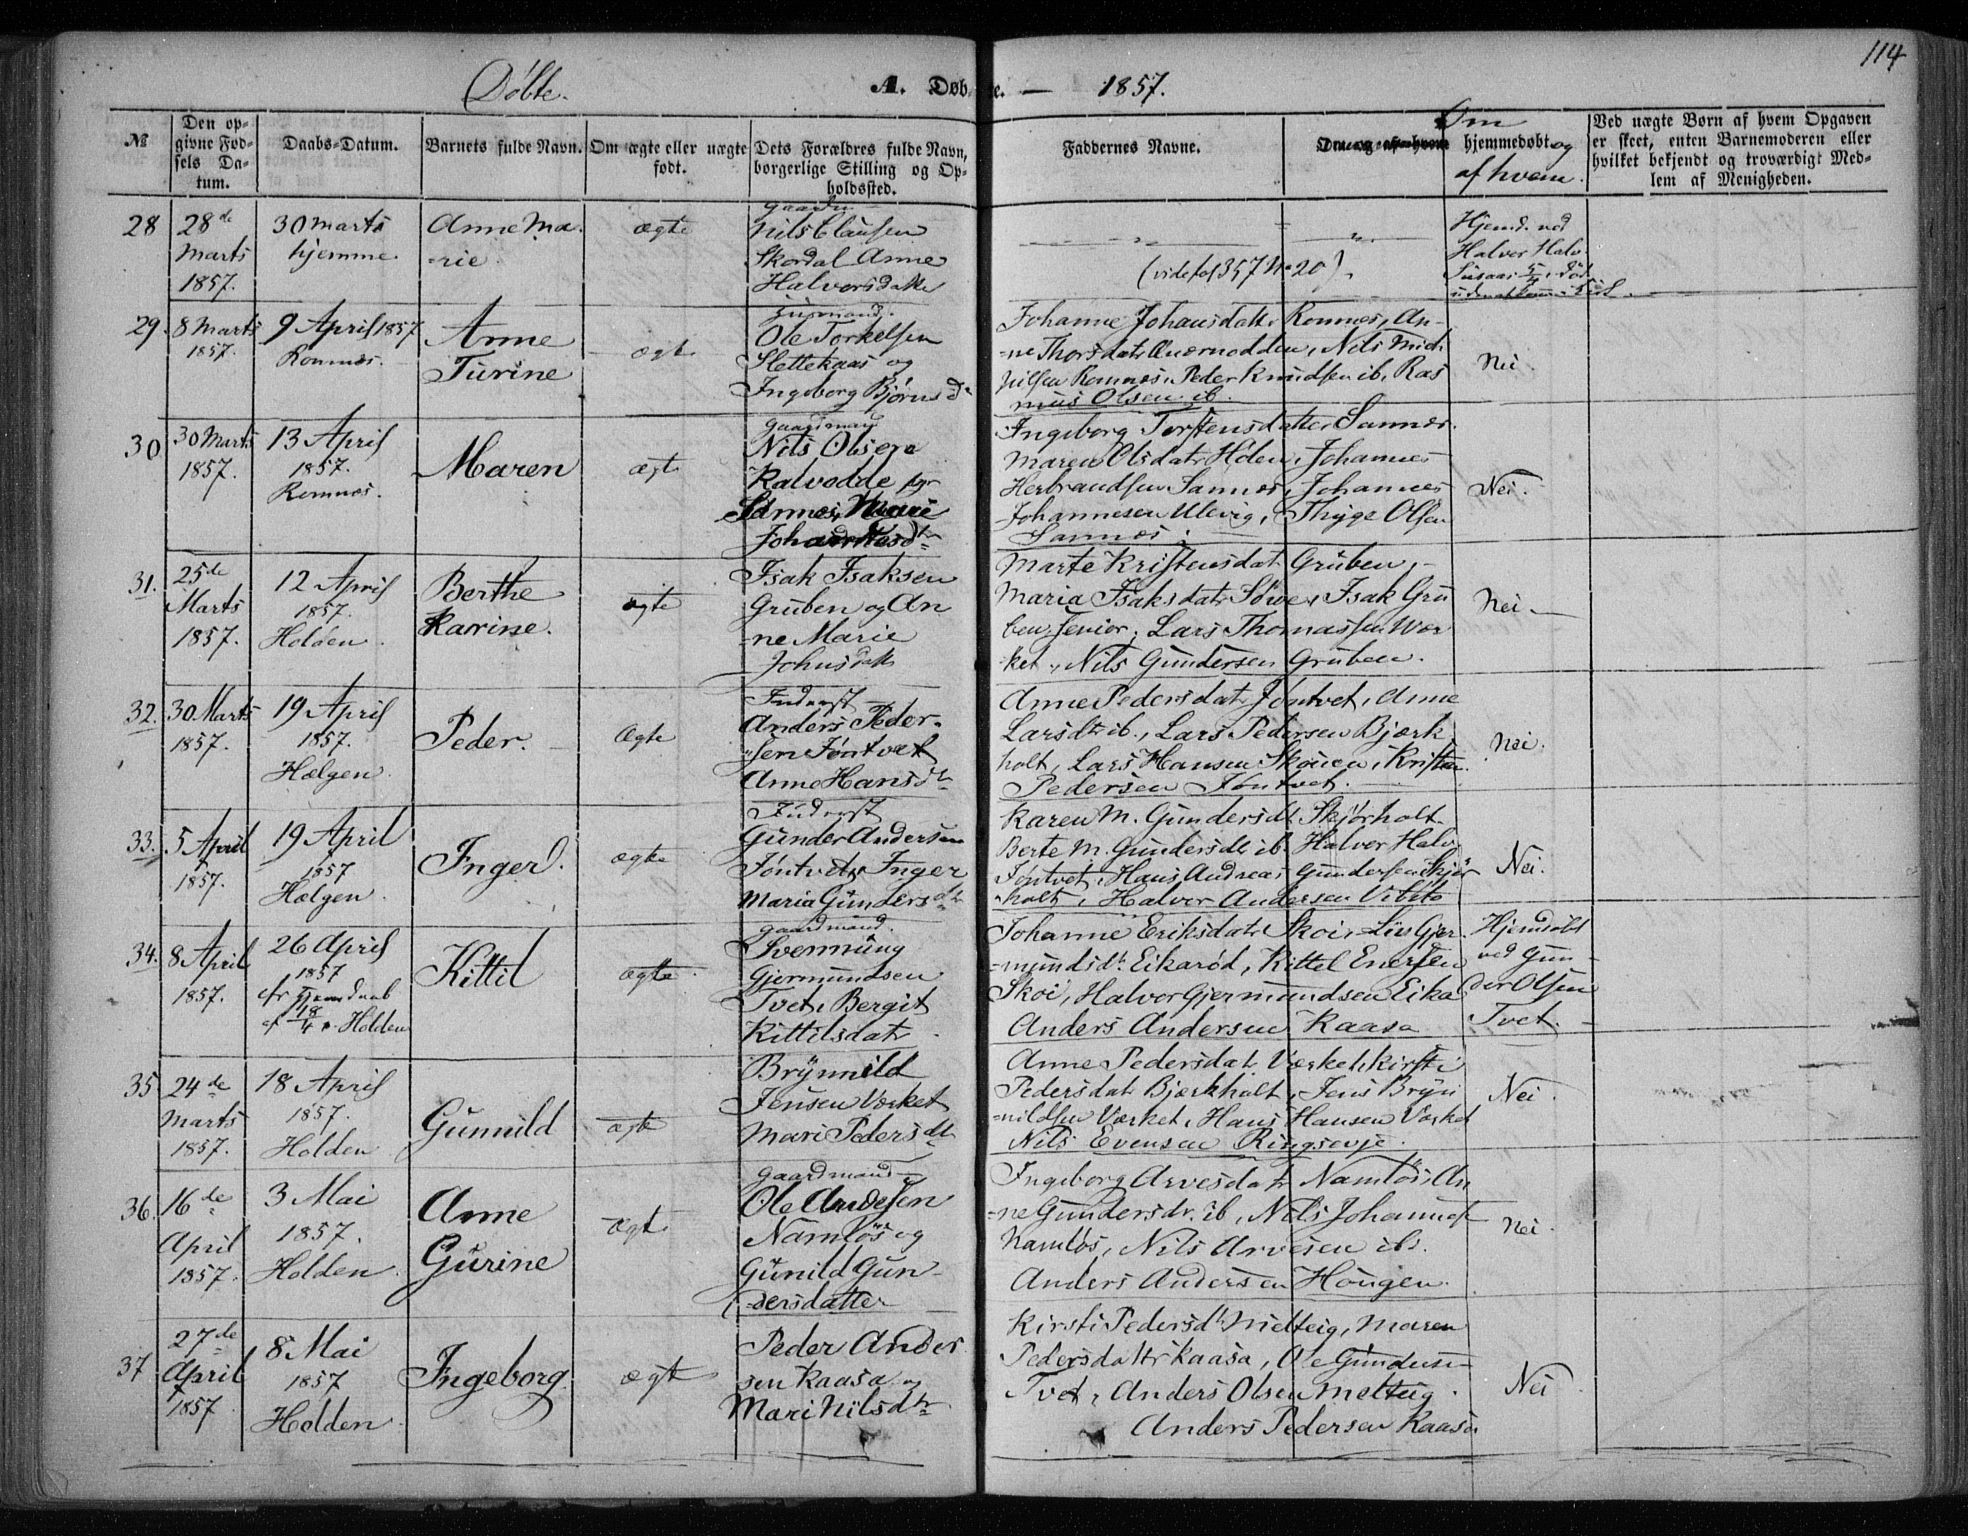 114
Døbte.
A. Døbte. — 1857.
№
Den opgivne Fødsels Datum.
Daabs-Datum.
Barnets fulde Navn.
Om ægte eller uægte født.
Dets Forældres fulde Navn, borgerlige Stilling og Opholdssted.
Faddernes Navne.
Om hjemmedøbt og af hvem.
Ved uægte Børn af hvem Opgaven er skeet, enten Barnemoderen eller hvilket bekjendt og troværdigt Medlem af Menigheden.
28
28de
Marts
1857.
30 Marts
hjemme.
Anne Ma-
-rie.
ægte
Nils Clausen
Skordal Anne
Halvorsdatter
(vide fol 357 No 20).
Hjemd. ved
Halver Halv
29.
8 Marts
1857.
9 April 1857.
Romnæs.
Anne
Turine
ægte
Ole Torkelsen
Slettekaas og
Ingeborg Bjørnsd
Johanne Johansdatr Romnes, An-
-ne Thorsdatr , Nils Mid-
Romnes, Peder Knudsen ib, Ras
mus Olsen ib.
Nei
30
30 Marts
1857.
13 April
1857.
Romnæs.
Maren
ægte
Gaardmand
Nils Olsen
Kalvodde
Sannes, Marie
Ingeborg Torstensdatter Sannæs.
Maren Olsdatr Holen, Johannes
Herbrandsen Sannes, Johannes
Johannesen Ulevig, Thyge Olsen
Sannes.
Nei.
31.
25de
Marts
1857.
12 April
1857.
Holden.
Berthe
Karine.
ægte
Isak Isaksen
Gruben og An
-ne Marie
Johnsdatr
Marte Kristensdat Gruben, -
Maria Isaksdatr Søve, Isak Gru
ben Senior, Lars Thomassen Vær
ket, Nils Gundersen Gruben.
Nei. —
32.
30. Marts
1857.
19 April
1857.
Hælgen.
Peder. —
Ægte
Inderst
Anders Peder-
sen Jøntvet
Anne Hansdtr
Anne Pedersdatr Jøntvet, Anne
Larsdtr ib., Lars Pedersen Bjærk
holt, Lars Hansen Skouen, Kristen
Pedersen Jøntvet. —
Nei.
33.
5 April
1857.
19 April
1857
Hælgen.
Inger.
ægte
Inderst
Gunder Andersen
Jøntvet, Inger
Maria Gundersdtr
Karen M. Gundersdt Skjørholt
Berte M. Gundersdtr ib. Halvor Halv.
Jøntvet, Hans Andreas Gundersen Skjør
holt, Halver Andersen Vibeto
Nei.
34.
8 April
1857.
26 April
1857
cfr Hjemmedaab
af 18/4 - Holden
Kittil
ægte
Gaardmand.
Svennung
Gjermundsen
Tvet, Bergit
Kittilsdatr
Johanne Eriksdatr Skoi, Liv Gjer-
-mundsdt. Eikarød, Kittel Enersen
Skoi, Halvor Gjermundsen Eika
Anders Andersen Kaasa
Hjemdøbt
ved Gun-
der Olsen
Tvet.
35
24de
Marts
1857.
18 April
1857.
Holden
Gunnild
ægte
Brynnild
Jensen Værket
Mari Pedersdtr
Anne Pedersdat. Værket, Kirsti
Pedersdat Bjærkholt, Jens Bryn
-nildsen Værket, Hans Hansen Værket
Nils Evensen Ringsevje.
Nei.
36.
16de
April
1857.
3 Mai
1857.
Holden.
Anne
Gurine
Ægte
Gaardmand
Ole Andersen
Namløs og
Gunild Gun-
-dersdatter
Ingeborg Arvesdatr Namløs, An
-ne Gundersdr. ib, Nils Johannes
Namløs, Nils Arvesen ib.
Anders Andersen Hougen.
Nei.
37
27de
April
1857
8 Mai
1857
Holden.
Ingeborg.
ægte
Peder Anders
sen Kaasa og
Mari Nilsdtr
Kirsti Pedersdt Midteig, Maren
Pedersdattr Kaasa, Ole Gundersen
Tvet, Anders Olsen .
Anders Pedersen Kaasa
Nei